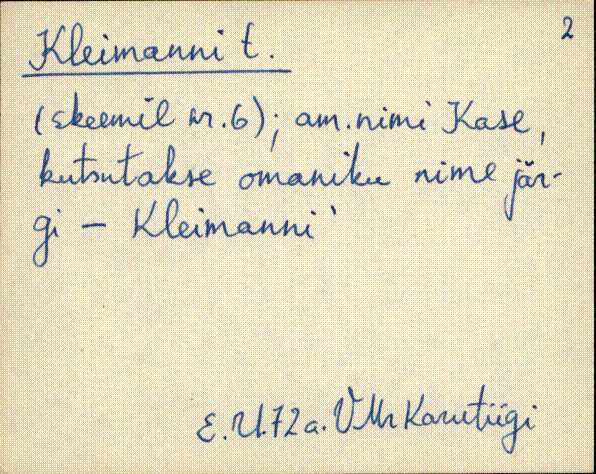 2
Kleimanni t.
(skeemil nr. 6); am. nimi Kase,
kutsutakse omaniku nime jär-
gi – Kleimanni'
E. U. 72 a. VMr Karutiigi